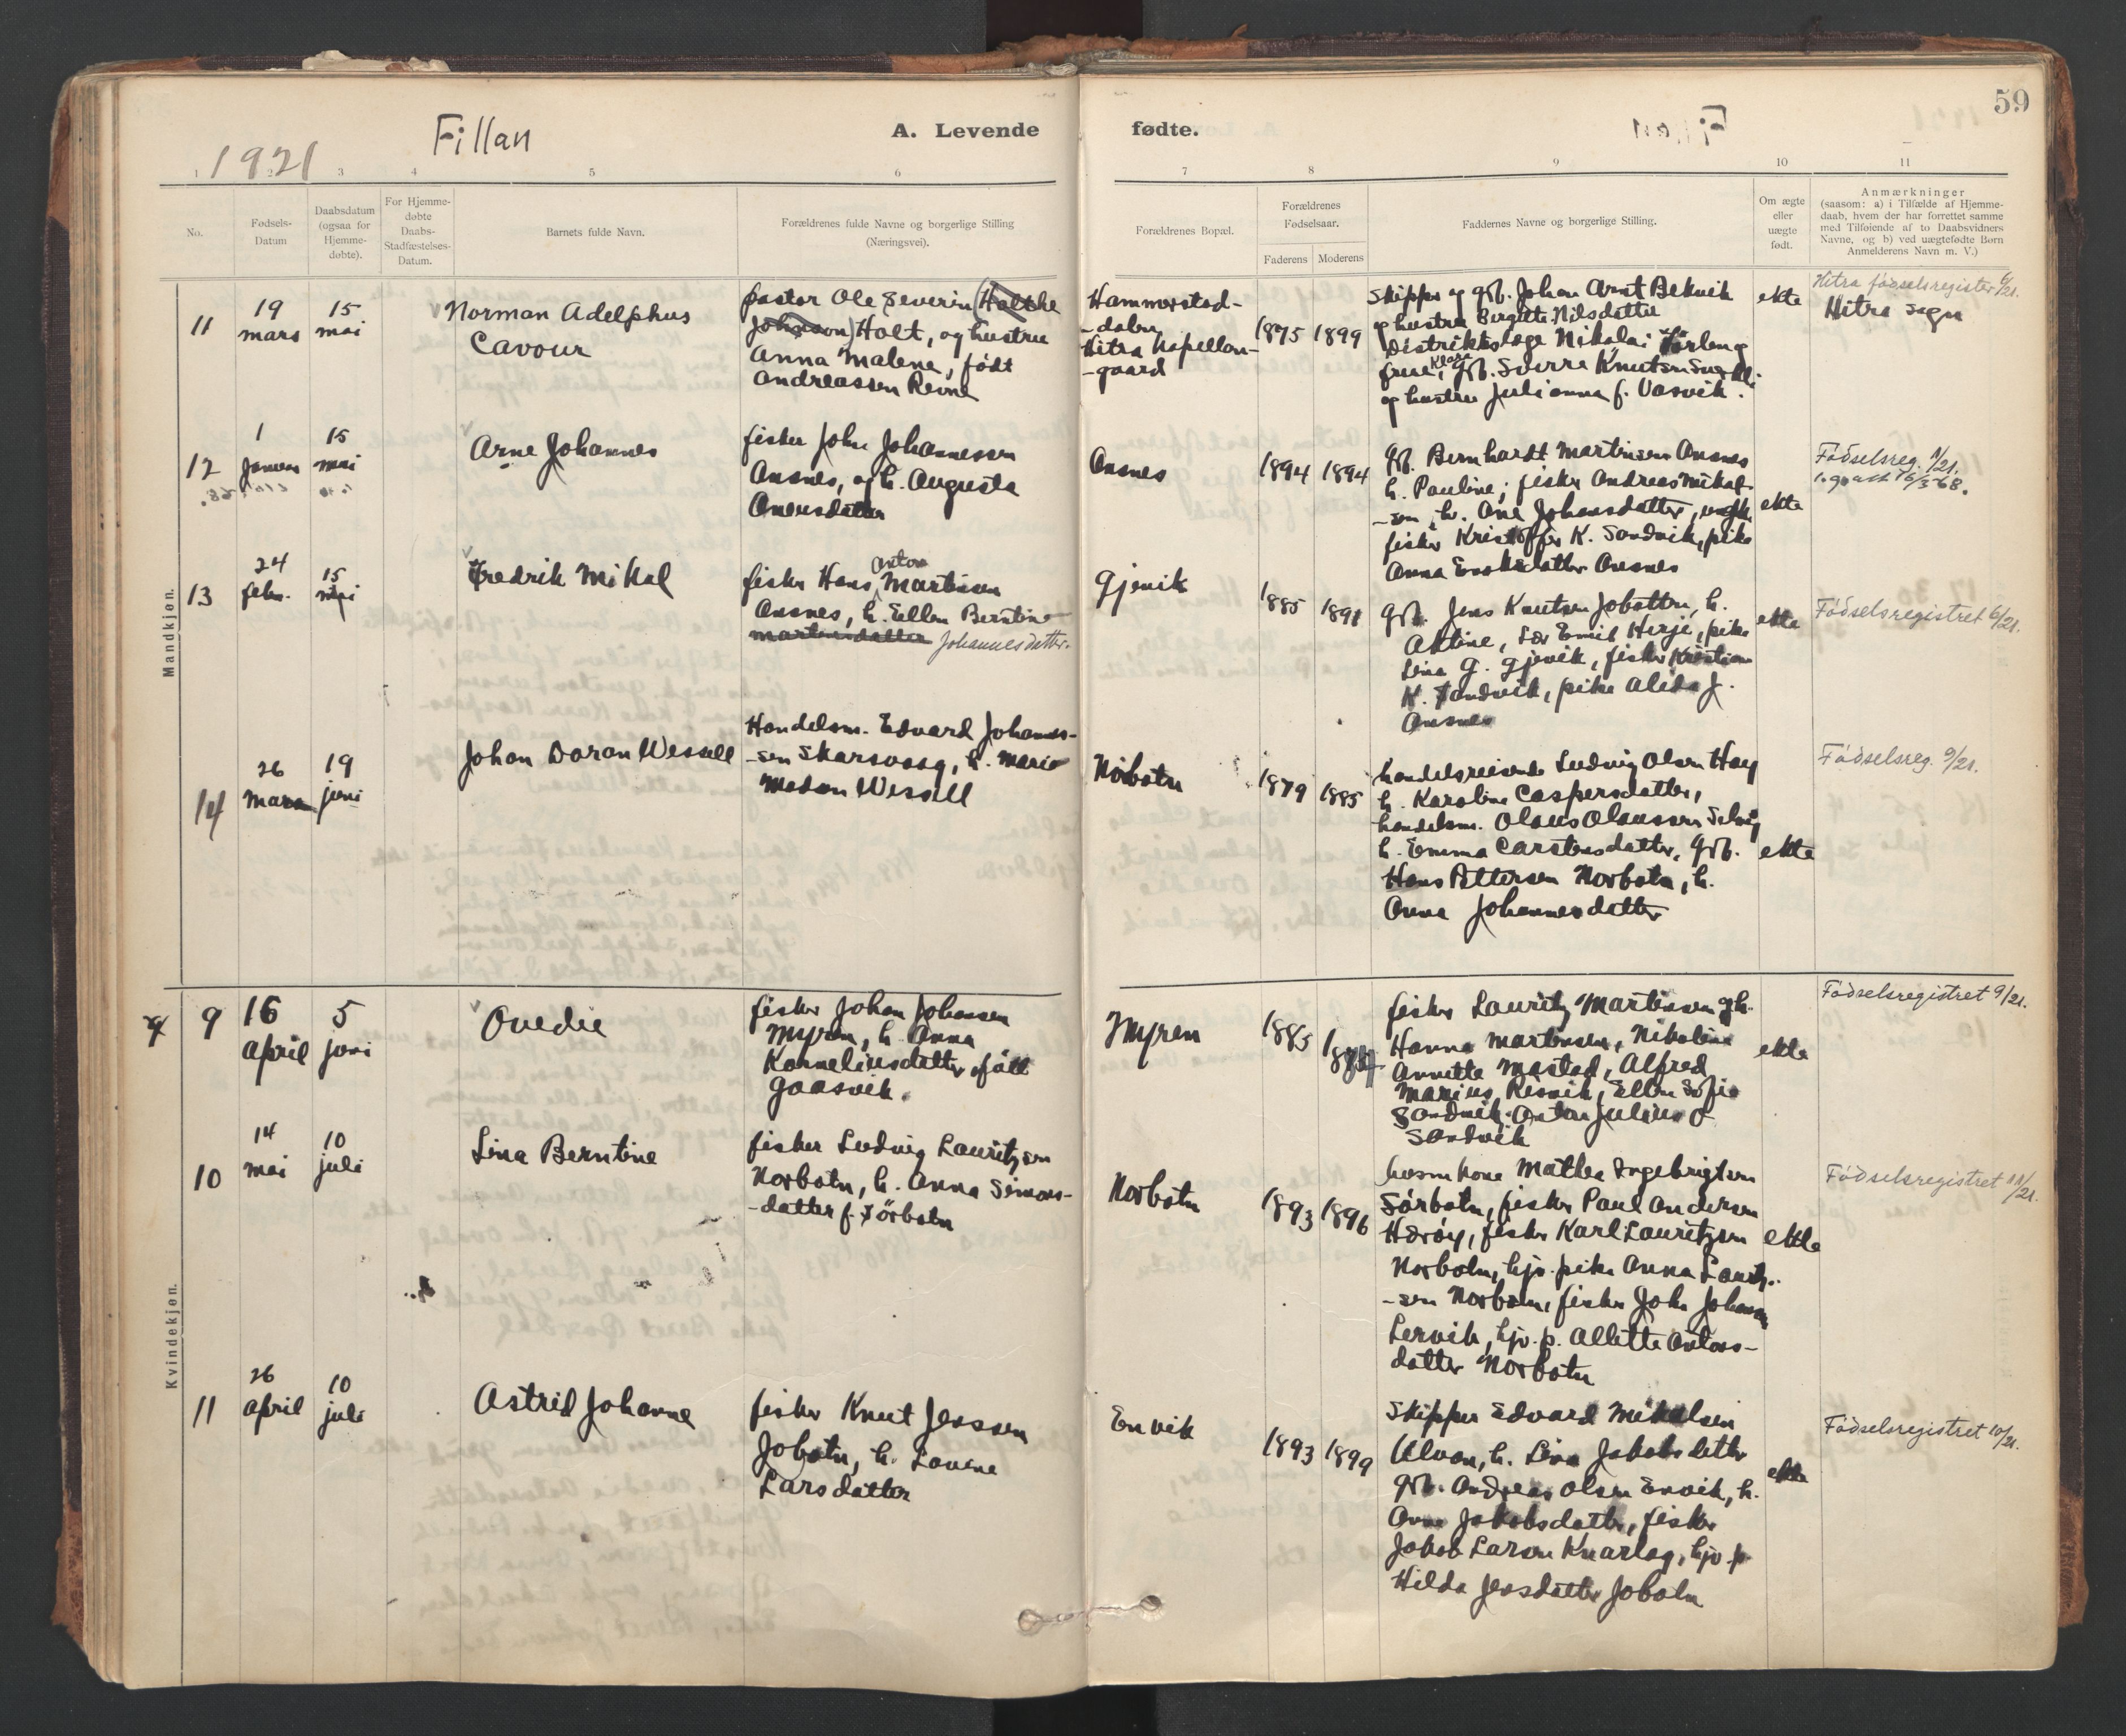 59
Fillan
A. Levende fødte.
1921
1 2 3 4 5 6 7 8 9 10 11
No.
Fødsels-
Datum
Daabsdatum
(ogsaa for
Hjemme-
døbte).
For Hjemme-
døbte
Daabs-
Stadfæstelses-
Datum.
Barnets fulde Navn.
Forældrenes fulde Navne og borgerlige Stilling
(Næringsvei).
Forældrenes Bopæl.
Forældrenes
Fødselsaar.
Faderens Moderens
Faddernes Navne og borgerlige Stilling.
Om ægte
eller
uægte
født.
Anmærkninger
(saasom: a) i Tilfælde af Hjemme-
daab, hvem der har forrettet samme
med Tilføiende af to Daabsvidners
Navne, og b) ved uægtefødte Børn
Anmelderens Navn m. V.)
Mandkjøn.
11
19
mars
15
mai
Norman Adelphus
Cavour
pastor Ole Severin (Holthe
Johnson) Holt, og hustru
Anna Malene, født
Andreassen Revne
Hammerstad-
-dalen
Hitra kapellan-
-gaard
1875 1899
Skipper og gb. Johan Arnt Bekvik
og hustru Birgitte Nilsdatter
Distriktslæge Nikolai
frue, Klara gb. Sverre Knutsen
og hustru Julianna f. Vasvik.
ekte
Hitra fødselsregister 6/21.
Hitra sogn
12
1
januar
15
mai
Arne Johannes
fisker John Johannessen
Ansnes, og h. Augusta
Anersdatter
Ansnes
1894 1894
gb. Bernhardt Martinsen Ansnes
h. Pauline; fisker Andreas Mikal-
-sen, h. Ane Johansdatter, ungk.
fisker Kristoffer K. Sandvik, pike
Anna Ansnes
ekte
Fødselsreg. 11/21.
13
24
febr.
15
mai
Fredrik Mikal
fisker Hans Anton Martinsen
Ansnes, h. Ellen Berntine
Martinsdatter Johannesdatter.
Gjevik
1885 1891
gb. Jens Knutsen Jobotten, h.
Aktine, Lær Emil Herje, pike
Lina G. Gjevik, fisker Kristian
K. Sandvik, pike Alida J.
Ansnes
ekte
Fødselsregistret 6/21.
14
26
mars
19
juni
Johan Doran Wessell
Handelsm. Edvard Johannes-
-sen Skarsvaag, h. Marie
Madsen Wessell
Norbotn
1879 1885
handelsreisende Ludvig Olsen Hay
h. Karoline Caspersdatter,
handelsm. Olaus Olaussen Selvig
h. Emma Carstensdatter, gb.
Hans Pettersen Norbotn, h.
Anna Johannesdatter
ekte
Fødselsreg. 9/21.
Kvindekjøn.
9
16
april
5
juni
Ovedie
fisker Johan Johansen
Myren, h. Anna
Korneliusdatter født
Gaasvik.
Myren
1885
fisker Lauritz Martinsen gh.
Hanna Martinsen, Nikoline
Annette Mastad, Alfred
Marius Risvik, Ellen Sofie
Sandvik. Anton Julius O
Sandvik
ekte
Fødselsregistret 9/21.
10
14
mai
10
juli
Lina Berntine
fisker Ludvig Lauritzsen
Norbotn, h. Anna Simons-
-datter f. Sørbotn
Norbotn
1893 1896
husm kone Mathea Ingebrigtsen
Sørbotn, fisker Paul Andersen
Hærøy, fisker Karl Lauritzsen
Norbotn, hjv. pike Anna Lauritz-
-sen Norbotn, fisker John Johansen
Lervik, hjv. p. Allette Antons-
datter Norbotn
ekte
Fødselsregistret 11/21.
11
26
april
10
juli
Astrid Johanne
fisker Knut Jenssen
Jobotn, h. Lovine
Larsdatter
Envik
1893 1899
Skipper Edvard Mikalsen
Ulvan, h. Lina Jakobsdatter
gb. Andreas Olsen Envik, h.
Anne Jakobsdatter, fisker
Jakob Larsen Knarlag, hjv. p.
Hilda Jensdatter Jobotn
ekte
Fødselsregistret 10/21.